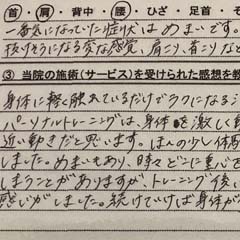 首・肩・背中・腰・ひざ・足首・そ
一番気になっていた症状はめまいです。
抜けそうになる変な感覚、肩こり、首こりなど
③ 当院の施術(サービス)を受けられた感想を教
身体に軽く触れているだけでラクになる
パーソナルトレーニングは、身体を激しく動
近い動きだと思います。ほんの少し体
しました。めまいもあり、時々どこに重心を
しまうことがありますが、トレーニング後
感じがしました。続けていけば身体が